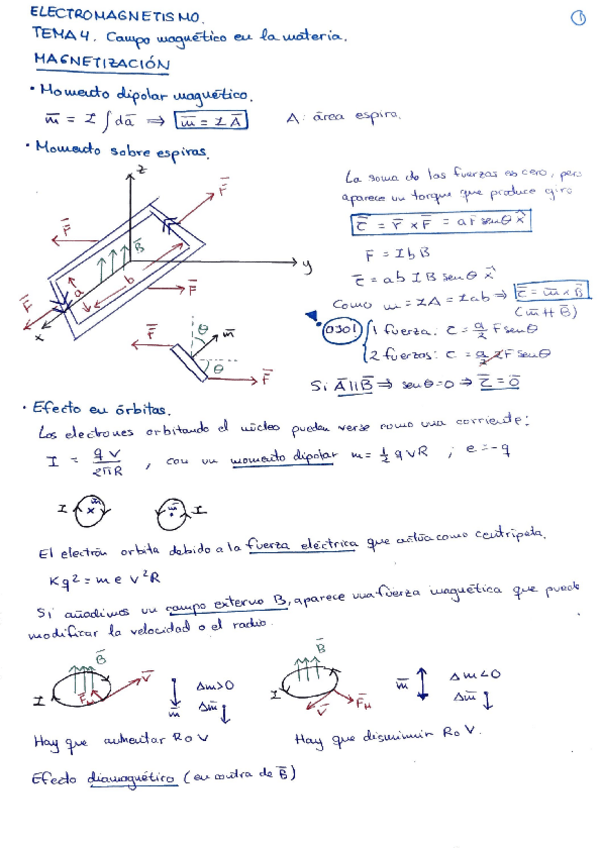 ELECTROMAGNETISMO.
①
TEMA 4. Campo magnético en la materia.
MAGNETIZACIÓN
• Momento dipolar magnético.
m̄ = I ∫dā ⇒ m̄ = I Ā
A: área espira.
• Momento sobre espiras.
La suma de las fuerzas es cero, pero
aparece un torque que produce giro
τ̄ = r̄ x F̄ = aF senθ x̂
F = I b B
τ̄ = ab I B senθ x̂
Como m = IA = Iab ⇒ τ̄ = m̄ x B̄
(m̄ H B̄)
0301
1 fuerza: τ = a/2 F senθ
2 fuerzas: τ = a/2 2F senθ
Si Ā || B̄ ⇒ senθ=0 ⇒ τ̄ = 0̄
z
F̄
F̄
B̄
a
b
y
F̄
F̄
x
F̄
θ
m̄
θ
F̄
• Efecto en órbitas.
Los electrones orbitando el núcleo pueden verse como una corriente:
I = qv/2πR , con un momento dipolar m = ½ q v R ; e = -q
I m̄ x
m̄ I
El electrón orbita debido a la fuerza eléctrica que actúa como centrípeta.
Kq² = me v²R
Si añadimos un campo externo B, aparece una fuerza magnética que puede
modificar la velocidad o el radio.
B̄
B̄
I F̄M v̄ m̄ Δm>0 Δm̄ ↓
I v̄ F̄M m̄ Δm<0 Δm̄ ↓
Hay que aumentar R o V
Hay que disminuir R o V.
Efecto diamagnético (en contra de B̄)